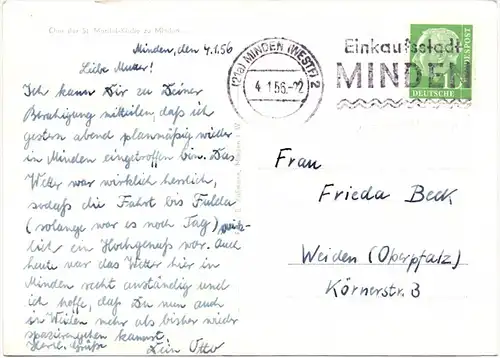 Chor der St Martinikirche zu Minden
Minden, den 4.1.56
Liebe Mutter!
Ich kann Dir zu Deiner
Beruhigung mitteilen, daß ich
gestern abend planmäßig wieder
in Minden eingetroffen bin. Das
Wetter war wirklich herrlich,
sodaß die Fahrt bis Fulda
(solange war es noch Tag) wirk-
lich ein Hochgenuß war. Auch
heute war das Wetter hier in
Minden recht anständig und
ich hoffe, daß Du nun auch
in Weiden mehr als bisher wieder
spazierengehen kannst.
Herzl. Grüße
Dein Otto
(21a) MINDEN (WESTF) 2
4.1.56.-22
Einkaufsstadt
MINDEN
DEUTSCHE
BUNDESPOST
Frau
Frieda Beck
Weiden (Oberpfalz)
Körnerstr. 3